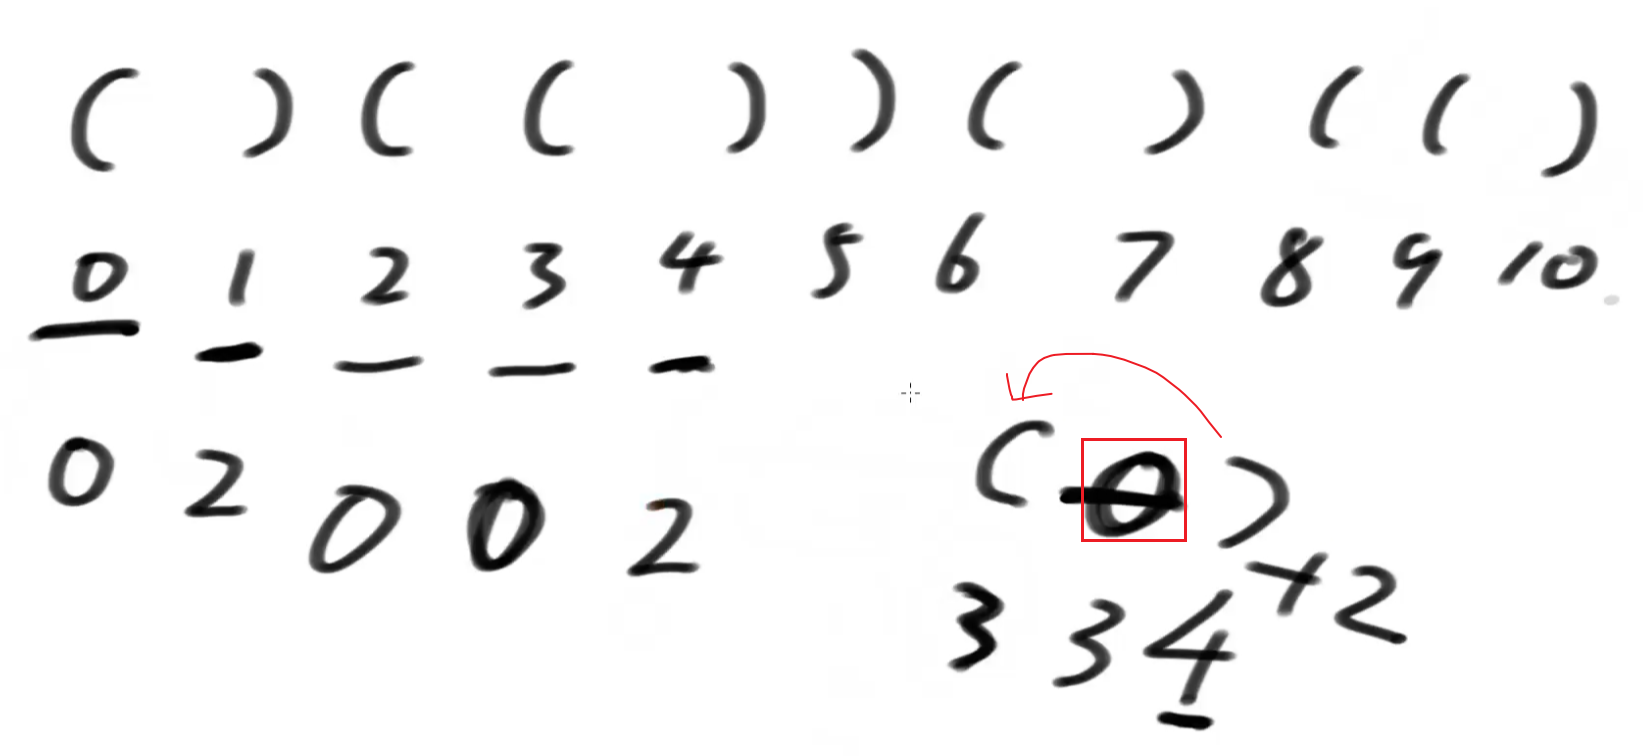 ( ) ( ( ) ) ( ) ( ( )
0 1 2 3 4 5 6 7 8 9 10
0 2 0 0 2
( 0 ) +2
3 3 4